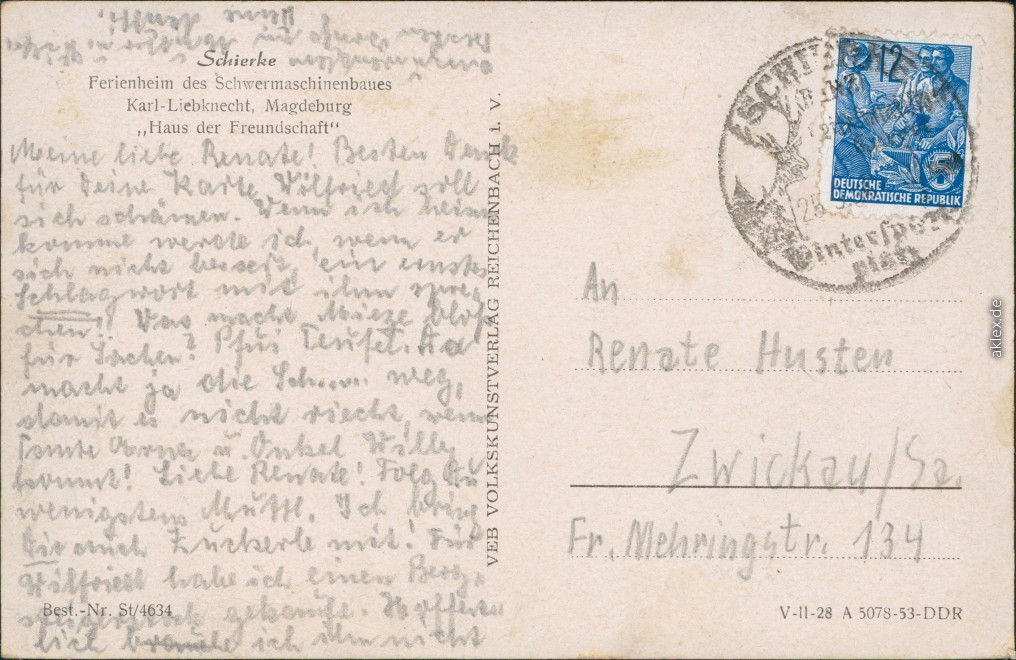 Schierke
Ferienheim des Schwermaschinenbaues
Karl-Liebknecht, Magdeburg
„Haus der Freundschaft"
Meine liebe Renate! Besten Dank
für Deine Karte. Wilfried soll
sich schämen. Wenn ich heim
komme werde ich, wenn er
sich nicht bessert, ein ernstes
Schlagwort mit ihm spre-
chen!! Was macht Mieze bloß
für Sachen? Pfui Teufel. Da
macht ja die weg,
damit es nicht riecht, wenn
Tante u. Onkel Willy
kommt! Liebe Renate! Folg Du
wenigstens Mutti. Ich bring
Dir auch Zuckerle mit! Für
Wilfried habe ich einen Berg-
steigerstock gekauft. Hoffent-
lich brauche ich ihm nicht
Deine
VEB VOLKSKUNSTVERLAG REICHENBACH i. V.
Best.-Nr. St/4634
SCHIERKE
Wintersport
platz
12
5
DEUTSCHE
DEMOKRATISCHE REPUBLIK
An
Renate Husten
Zwickau/Sa.
Fr. Mehringstr. 134
V-II-28 A 5078-53-DDR
aklex.de